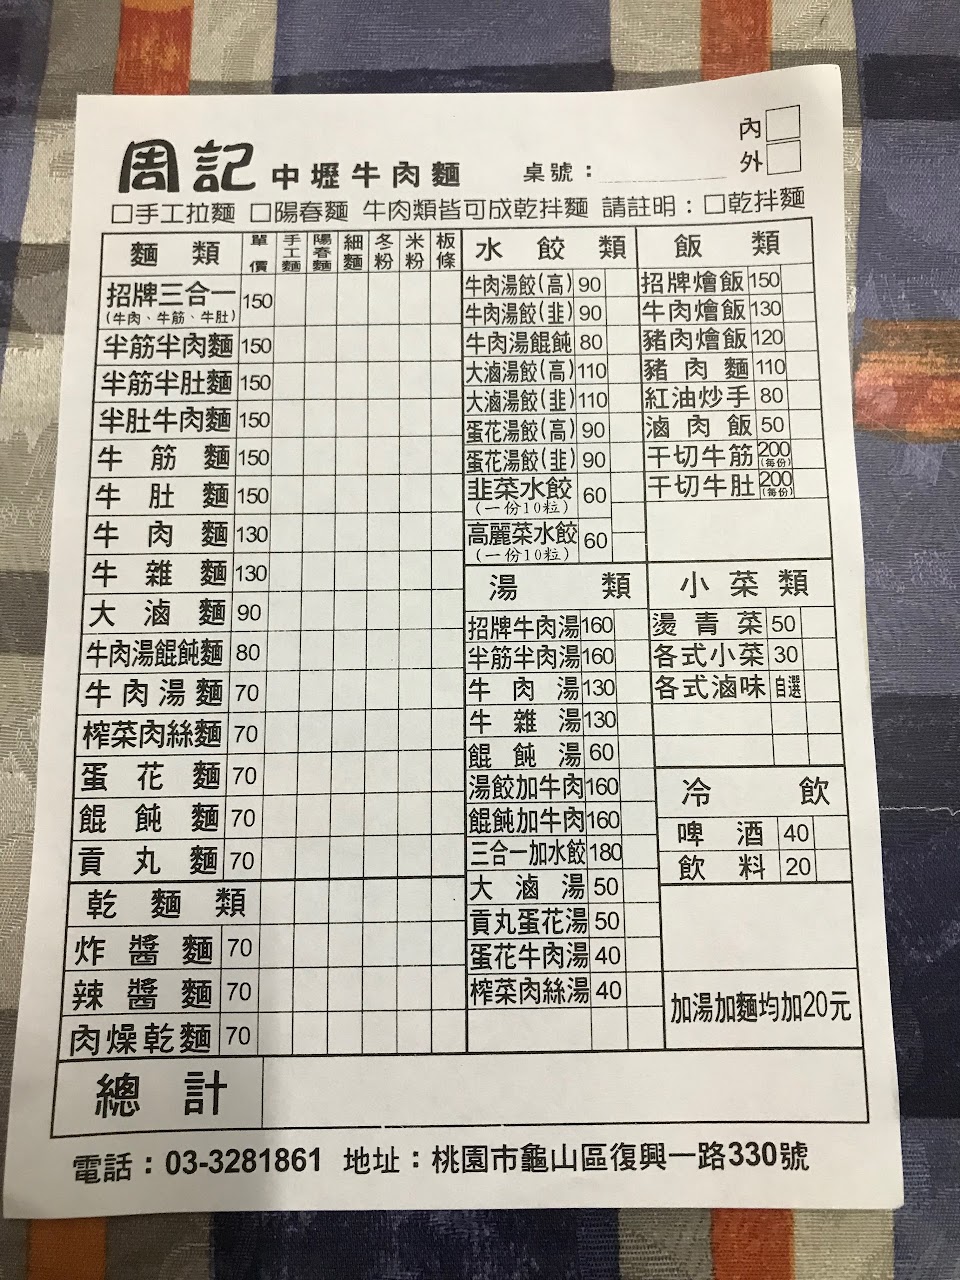 周記 中壢牛肉麵 桌號： 內
外
□手工拉麵 □陽春麵 牛肉類皆可成乾拌麵 請註明：□乾拌麵
麵類 單價 手工麵 陽春麵 細麵 冬粉 米粉 板條
招牌三合一 150
(牛肉、牛筋、牛肚)
半筋半肉麵 150
半筋半肚麵 150
半肚牛肉麵 150
牛筋麵 150
牛肚麵 150
牛肉麵 130
牛雜麵 130
大滷麵 90
牛肉湯餛飩麵 80
牛肉湯麵 70
榨菜肉絲麵 70
蛋花麵 70
餛飩麵 70
貢丸麵 70
乾麵類
炸醬麵 70
辣醬麵 70
肉燥乾麵 70
水餃類
牛肉湯餃(高) 90
牛肉湯餃(韭) 90
牛肉湯餛飩 80
大滷湯餃(高) 110
大滷湯餃(韭) 110
蛋花湯餃(高) 90
蛋花湯餃(韭) 90
韭菜水餃 60
(一份10粒)
高麗菜水餃 60
(一份10粒)
湯類
招牌牛肉湯 160
半筋半肉湯 160
牛肉湯 130
牛雜湯 130
餛飩湯 60
湯餃加牛肉 160
餛飩加牛肉 160
三合一加水餃 180
大滷湯 50
貢丸蛋花湯 50
蛋花牛肉湯 40
榨菜肉絲湯 40
飯類
招牌燴飯 150
牛肉燴飯 130
豬肉燴飯 120
豬肉麵 110
紅油炒手 80
滷肉飯 50
干切牛筋 200
(每份)
干切牛肚 200
(每份)
小菜類
燙青菜 50
各式小菜 30
各式滷味 自選
冷飲
啤酒 40
飲料 20
加湯加麵均加20元
總計
電話：03-3281861 地址：桃園市龜山區復興一路330號